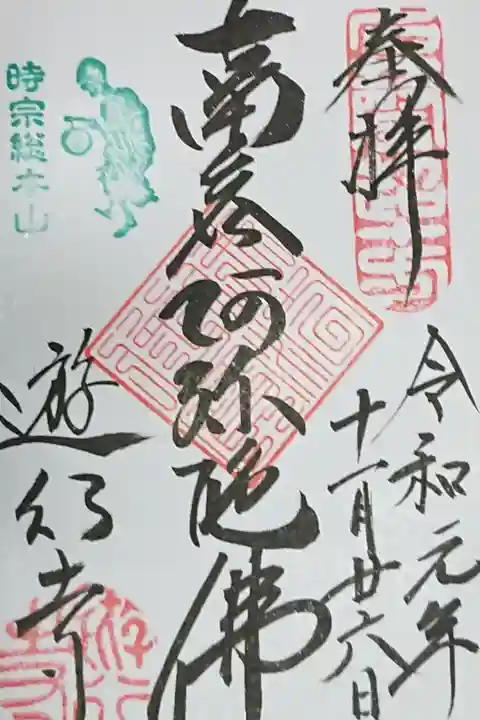 奉拝
令和元年
十一月廿六日
南無阿弥陀佛
時宗総本山
遊行寺